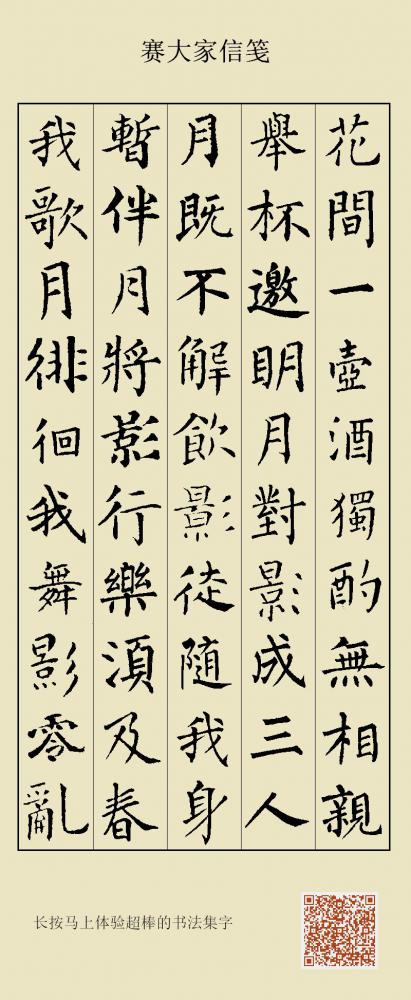 赛大家信笺
花間一壺酒獨酌無相親
舉杯邀明月對影成三人
月既不解飲影徒隨我身
暫伴月將影行樂須及春
我歌月徘徊我舞影零亂
长按马上体验超棒的书法集字